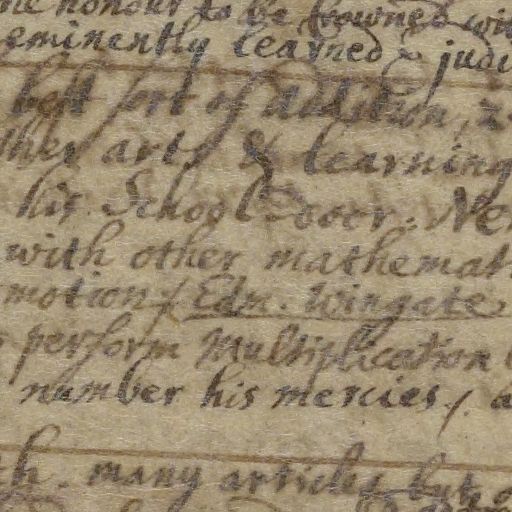 honour to be Crowned wit
eminently learned & judi
best sort of Addition, 2.
ther arts & learning
his School Door: Ne
with other mathemati
motion / Edm. Wingate
perform Multiplication
number his mercies /. a
th. many articles but